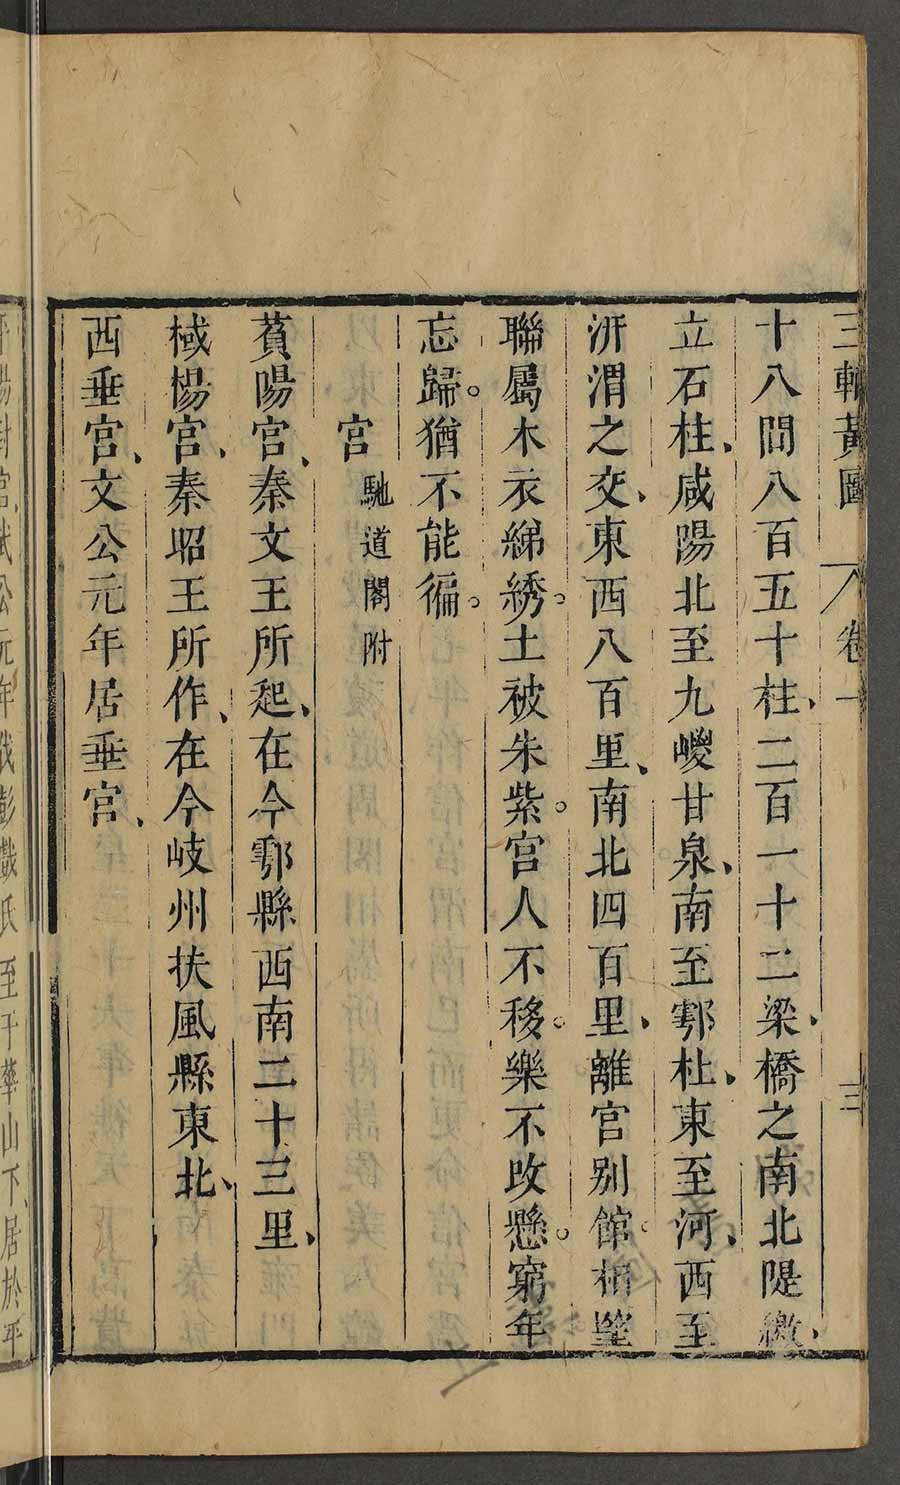 三輔黃圖 卷一 三
十八間八百五十柱、二百一十二梁、橋之南北隄、繳
立石柱、咸陽北至九嵕甘泉、南至鄠杜、東至河、西至
汧渭之交、東西八百里、南北四百里、離宮别館。相望
聯屬木衣綈綉。土被朱紫。宮人不移。樂不改懸。窮年
忘歸。猶不能徧。
宮 馳道閣附
萯陽宮、秦文王所起、在今鄠縣西南二十三里、
棫楊宮、秦昭王所作、在今岐州扶風縣東北、
西垂宮、文公元年居垂宮、
平陽封宮、武公元年伐彭戲氏至于華山下、居於平